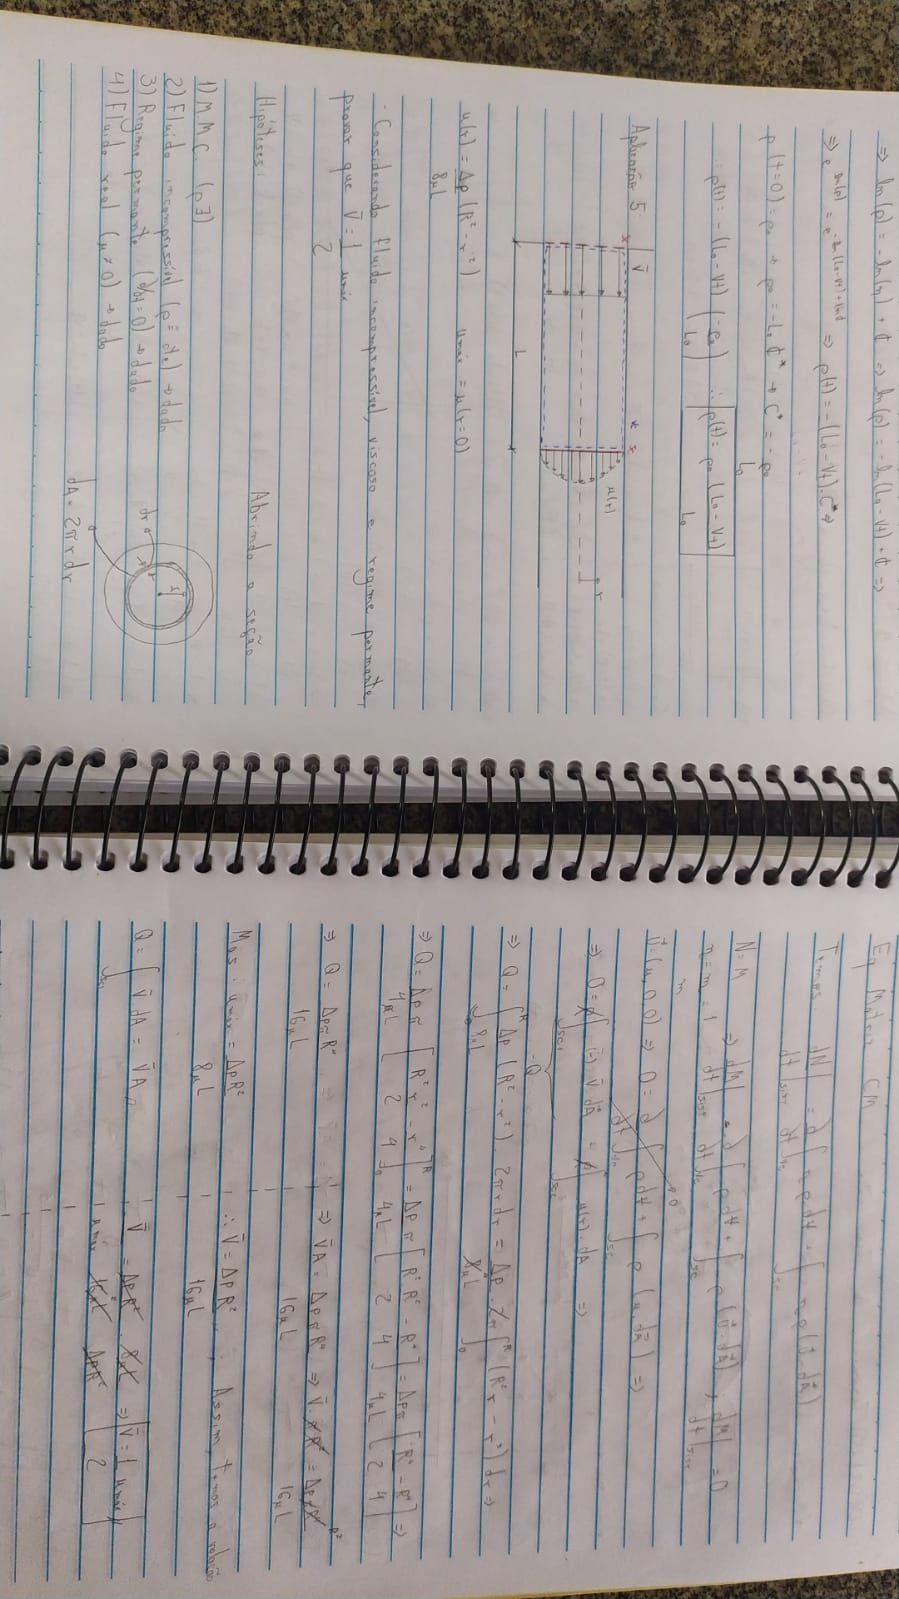 ⇒ ln(ρ) = -ln(η) + C ⇒ ln(ρ) = -ln(L₀ - Vt) + C ⇒
⇒ ρ(t) = -(L₀ - Vt).C* ⇒
ρ(t=0) = ρ₀ → ρ₀ = -L₀ C* → C* = -ρ₀/L₀
∴ ρ(t) = -(L₀ - Vt) (-ρ₀/L₀) ∴ ρ(t) = ρ₀ (L₀ - Vt)/L₀
Aplicação 5:
V̄
u(r)
r
L
u(r) = Δp/8μL (R² - r²) umáx = u(r=0)
- Considerando fluido incompressível, viscoso e regime permante,
provar que V̄ = 1/2 umáx
Hipóteses: Abrindo a seção
1) M.M.C (ρ∃)
2) Fluido incompressível (ρ = cte) → dado
3) Regime permante (∂/∂t = 0) → dado
4) Fluido real (μ ≠ 0) → dado
dr
r
dA = 2πrdr
Eq Motriz CM
Temos: dN/dt|sist = ∂/∂t ∫vc ηρd∀ + ∫sc ηρ(v⃗·dA⃗)
N = M ⇒ dM/dt|sist = ∂/∂t ∫vc ρd∀ + ∫sc ρ(v⃗·dA⃗) ; dM/dt|sist = 0
η = m/m = 1
v⃗ = (u,0,0) ⇒ 0 = ∂/∂t ∫vc ρd∀ + ∫sc ρ(u dA⃗) ⇒
⇒ 0 = ρ∫sc1 (-) V̄ dA = ρ∫sc u(r).dA ⇒
-Q
⇒ Q = ∫₀ᴿ Δp/8μL (R² - r²). 2πrdr = Δp.2π/8μL ∫₀ᴿ (R²r - r³) dr ⇒
⇒ Q = Δpπ/4μL [R²r²/2 - r⁴/4]₀ᴿ = Δpπ/4μL [R²R²/2 - R⁴/4] = Δpπ/4μL [R⁴/2 - R⁴/4] ⇒
⇒ Q = ΔpπR⁴/16μL ⇒ V̄A = ΔpπR⁴/16μL ⇒ V̄.πR² = ΔpπR⁴/16μL R²
Mas: umáx = ΔpR²/8μL ∴ V̄ = ΔpR²/16μL ; Assim, temos a relação
Q = ∫sc1 V̄ dA = V̄A, V̄/umáx = ΔpR²/16μL . 8μL/ΔpR² ⇒ V̄ = 1/2 umáx